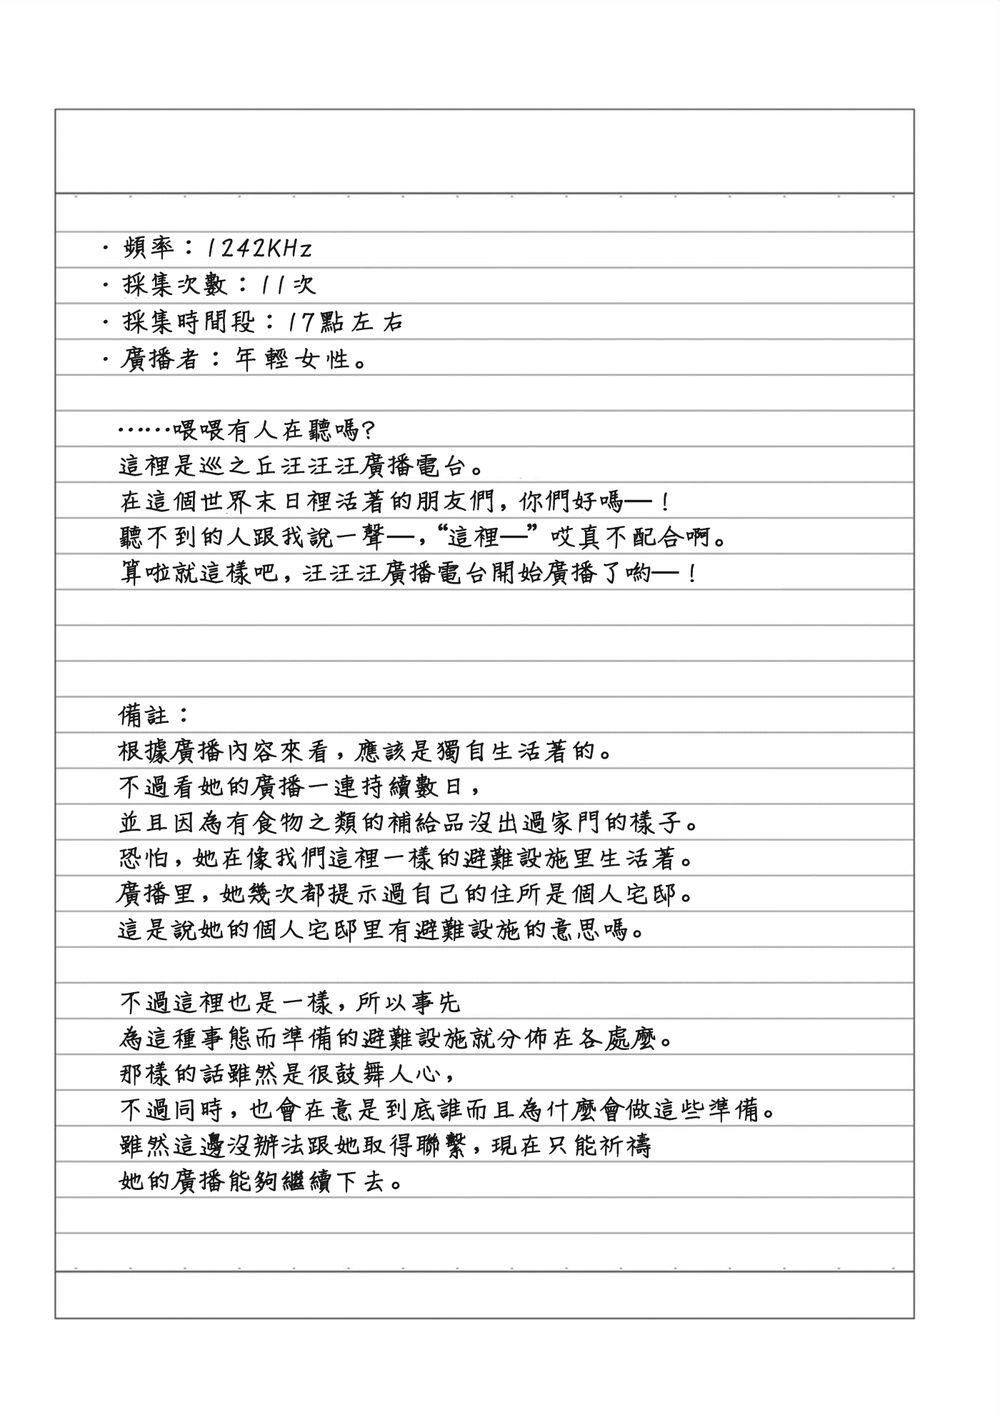 ・頻率：1242KHz
・採集次數：11次
・採集時間段：17點左右
・廣播者：年輕女性。
……喂喂有人在聽嗎?
這裡是巡之丘汪汪汪廣播電台。
在這個世界末日裡活著的朋友們，你們好嗎—！
聽不到的人跟我說一聲—，“這裡—”哎真不配合啊。
算啦就這樣吧，汪汪汪廣播電台開始廣播了喲—！
備註：
根據廣播內容來看，應該是獨自生活著的。
不過看她的廣播一連持續數日，
並且因為有食物之類的補給品沒出過家門的樣子。
恐怕，她在像我們這裡一樣的避難設施里生活著。
廣播里，她幾次都提示過自己的住所是個人宅邸。
這是說她的個人宅邸里有避難設施的意思嗎。
不過這裡也是一樣，所以事先
為這種事態而準備的避難設施就分佈在各處麼。
那樣的話雖然是很鼓舞人心，
不過同時，也會在意是到底誰而且為什麼會做這些準備。
雖然這邊沒辦法跟她取得聯繫，現在只能祈禱
她的廣播能夠繼續下去。